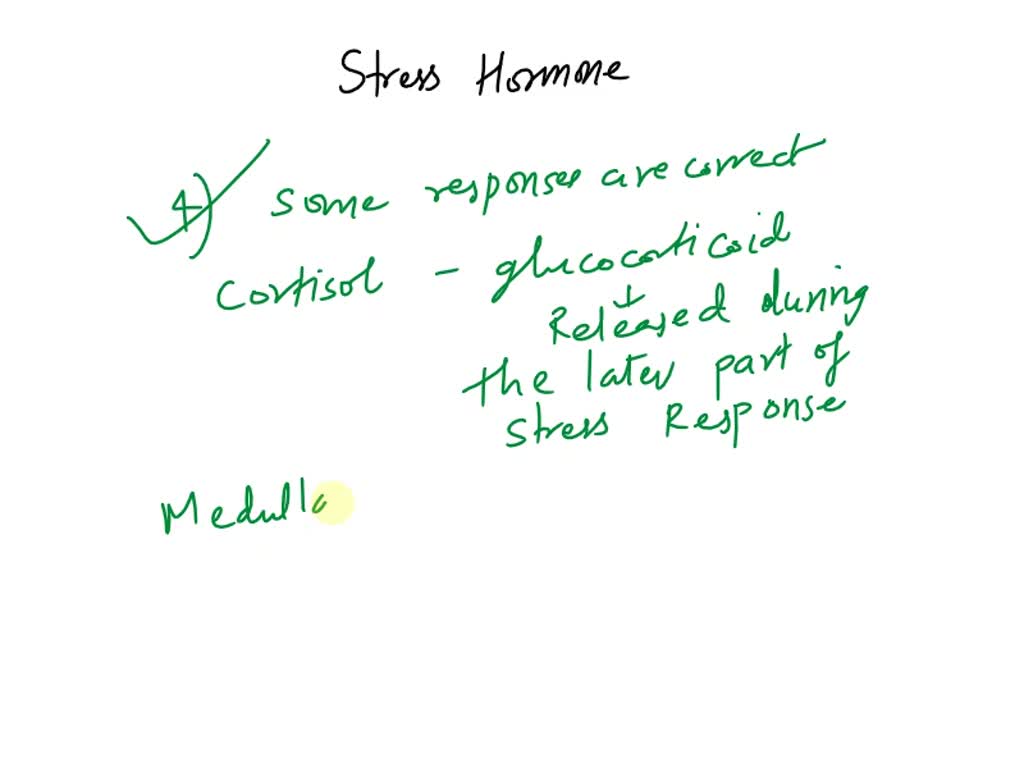 Stress Hormone
4) Some responses are correct
Cortisol - glucocorticoid
Released during
the later part of
stress Response
Medulla